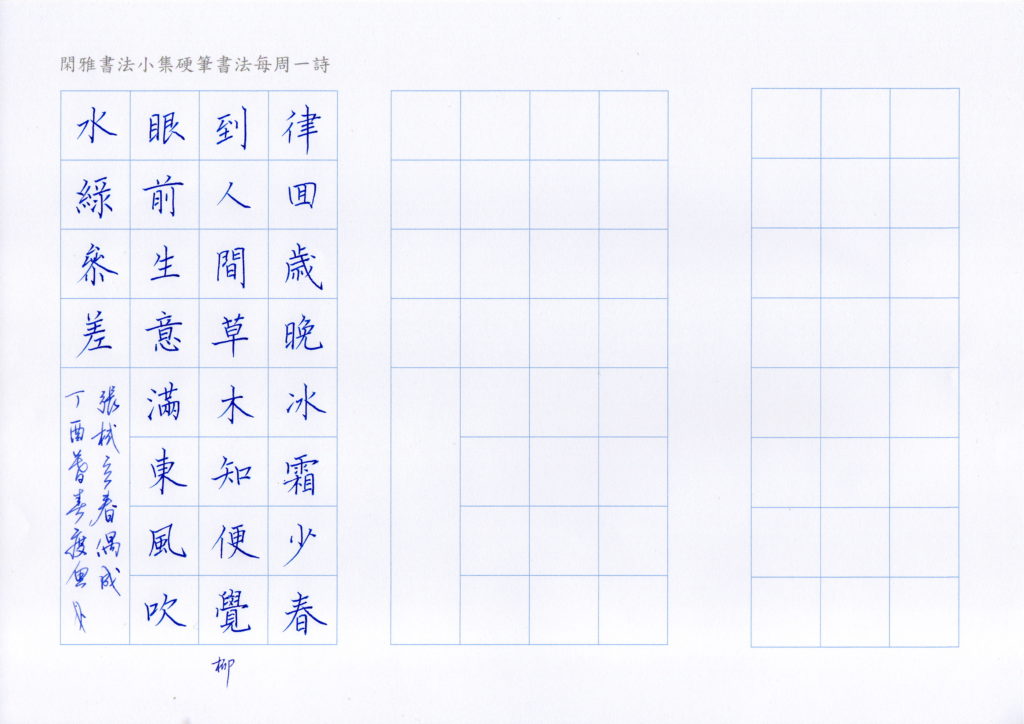 閑雅書法小集硬筆書法每周一詩
律回歲晚冰霜少春
到人間草木知便覺
眼前生意滿東風吹
水綠參差
張栻立春偶成
丁酉暮春疲魚
柳